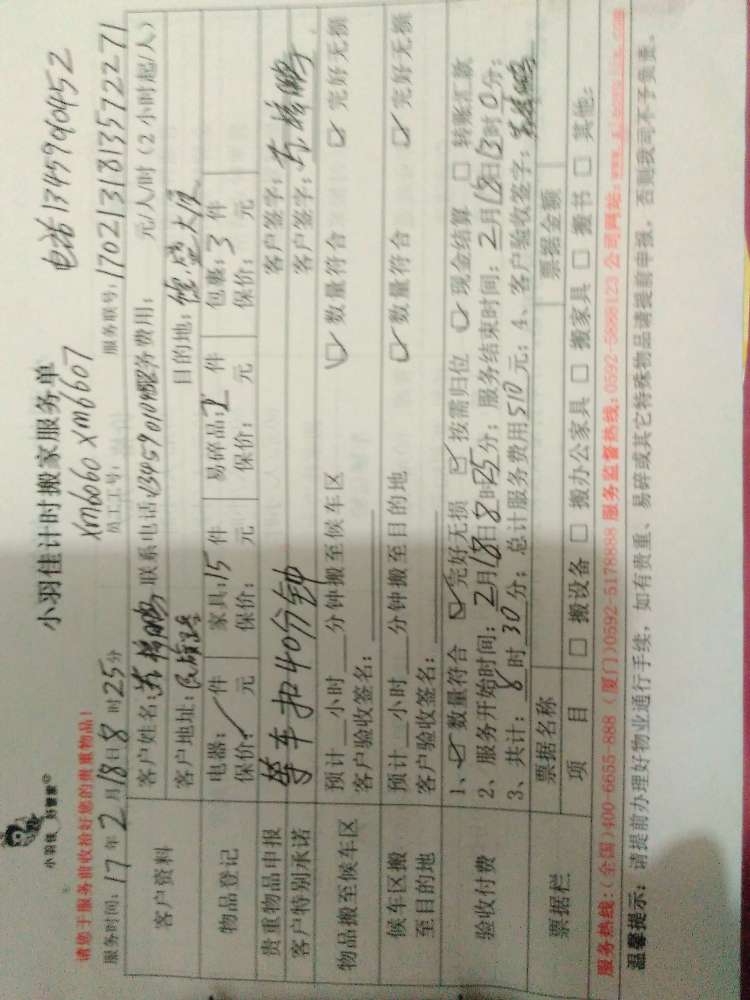 小羽佳 好管家
小羽佳计时搬家服务单
电话13459040452
请您于服务前收拾好您的贵重物品!
xm6060 xm6607
服务时间:17年2月18日8时25分 员工工号: 服务联号:1702131813572271
客户资料
客户姓名: 联系电话: 服务费用: 元/人/时(2小时起/人)
客户地址:民族路 目的地:
物品登记
电器: 件 家具:15件 易碎品:2件 包裹:3件
保价: 元 保价: 元 保价: 元 保价: 元
贵重物品申报 客户签字:
客户特别承诺 等车扣40分钟 客户签字:
物品搬至候车区
预计 小时 分钟搬至候车区 ☑数量符合 ☑完好无损
客户验收签名:
候车区搬至目的地
预计 小时 分钟搬至目的地 ☑数量符合 ☑完好无损
客户验收签名:
验收付费
1、☑数量符合 ☑完好无损 ☑按需归位 ☑现金结算 □转账汇款
2、服务开始时间:2月18日8时25分;服务结束时间:2月18日13时0分;
3、共计: 时30分;总计服务费用510元;4、客户验收签字:
票据栏
票据名称 票据金额
项目 □搬设备 □搬办公家具 □搬家具 □搬书 □其他:
服务热线:(全国)400-6655-888 (厦门)0592-5178888 服务监督热线:0592-5888123 公司网站:
温馨提示:请提前办理好物业通行手续,如有贵重、易碎或其它特殊物品请提前申报,否则我司不予负责。